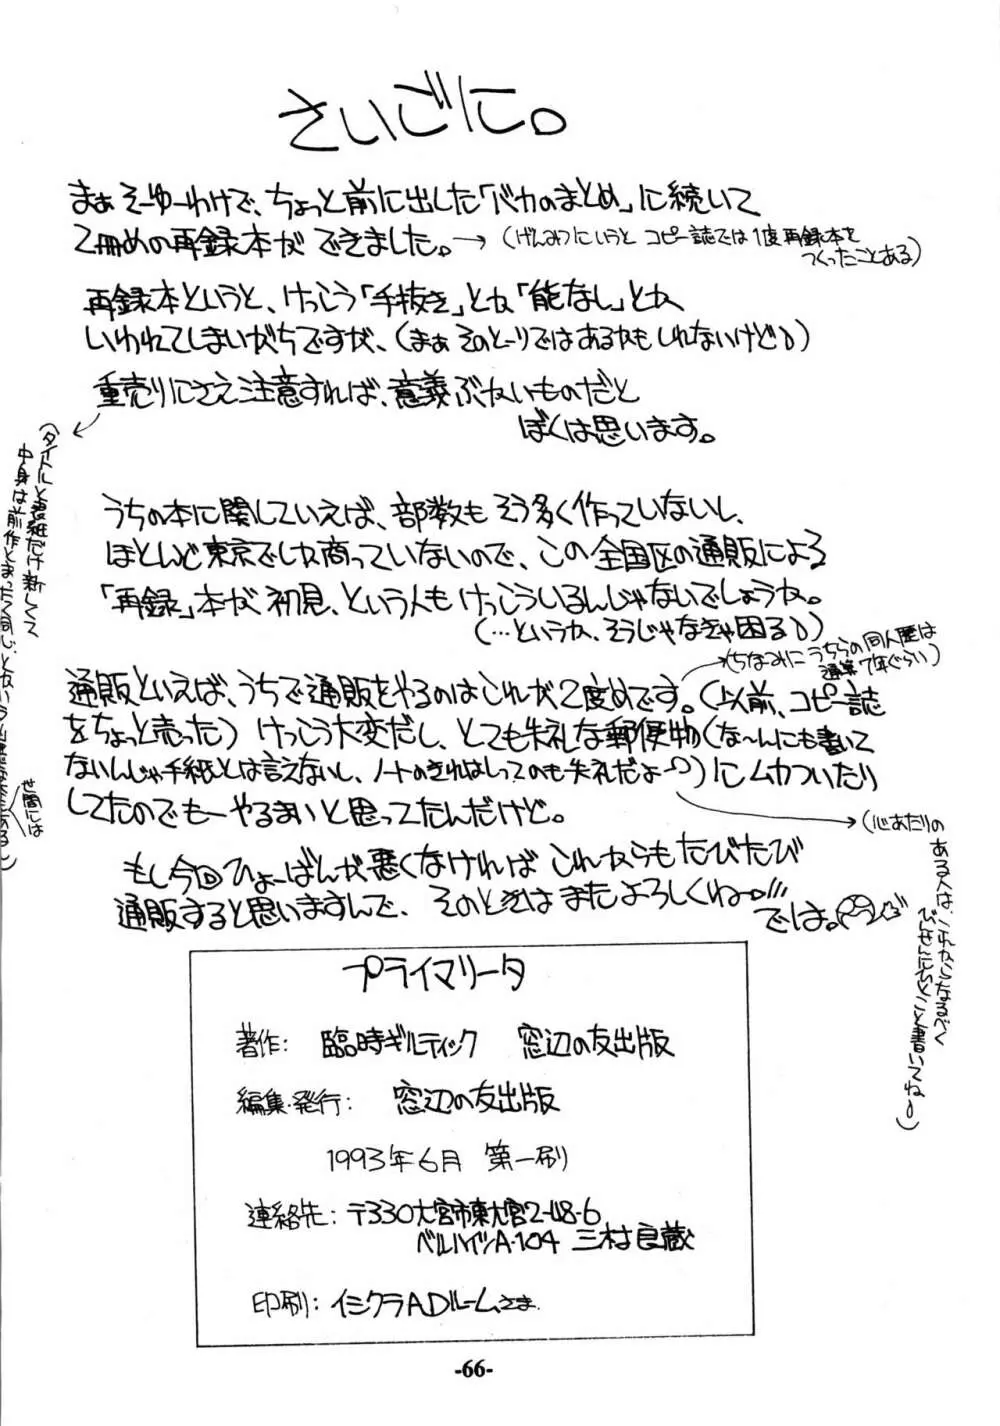 さいごに。
まぁそーゆーわけで、ちょっと前に出した「バカのまとめ」に続いて
2冊めの再録本ができました。→(げんみつにいうと コピー誌では1度再録本を
つくったことある)
再録本というと、けっこう「手抜き」とか「能なし」とか
いわれてしまいがちですが、(まぁそのとーりではあるかもしれないけど)
重売りにさえ注意すれば、意義ぶかいものだと
ぼくは思います。
(タイトルと表紙だけ新しくて
中身は前作とまったく同じ、とかいう
世間には
うちの本に関していえば、部数もそう多く作っていないし、
ほとんど東京でしか商っていないので、この全国区の通販による
「再録」本が初見、という人もけっこういるんじゃないでしょうか。
(…というか、そうじゃなきゃ困る)
(ちなみに うちらの同人歴は
通算7年ぐらい)
通販といえば、うちで通販をやるのはこれが2度めです。(以前、コピー誌
をちょっと売った) けっこう大変だし、とても失礼な郵便物(な〜んにも書いて
ないんじゃ手紙とは言えないし、ノートのきれはしってのも失礼だよー)にムカついたり
してたのでもーやるまいと思ってたんだけど。
→(心あたりの
ある人は、これからなるべく
びんせんにひとこと書いてね)
もし今回ひょーばんが悪くなければ これからもたびたび
通販すると思いますんで、そのときはまたよろしくねー!!!
では。
プライマリータ
著作: 臨時ギルティック 窓辺の友出版
編集・発行: 窓辺の友出版
1993年6月 第一刷
連絡先: 〒330大宮市東大宮2-48-6
ベルハイツA-104 三村良蔵
印刷: イシクラADルームさま.
-66-